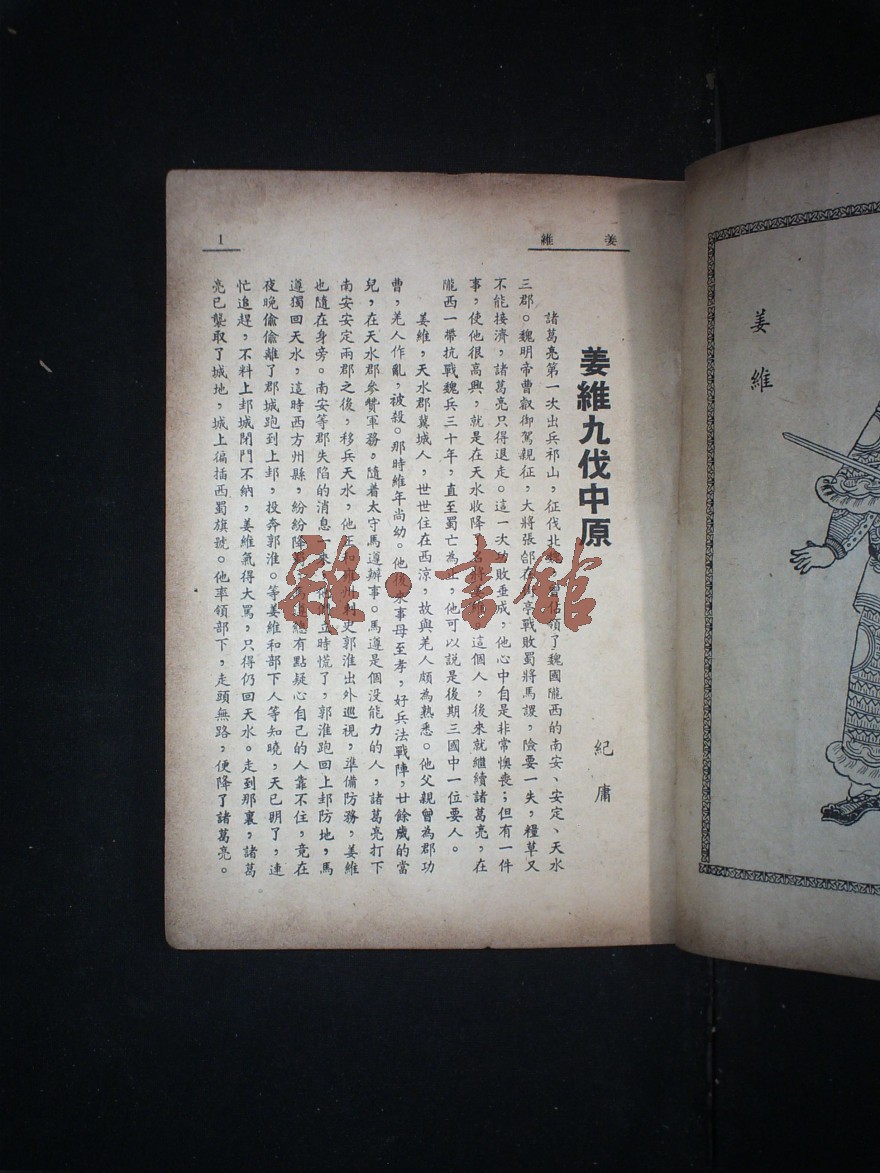 姜維
姜維
1
姜維九伐中原
紀庸
諸葛亮第一次出兵祁山，征伐北 佔領了魏國隴西的南安、安定、天水
三郡。魏明帝曹叡御駕親征，大將張郃在 亭戰敗蜀將馬謖，險要一失，糧草又
不能接濟，諸葛亮只得退走。這一次功敗垂成，他心中自是非常懊喪；但有一件
事，使他很高興，就是在天水收降 名將姜維。這個人，後來就繼續諸葛亮，在
隴西一帶抗戰魏兵三十年，直至蜀亡為止，他可以說是後期三國中一位要人。
姜維，天水郡冀城人，世世住在西涼，故與羌人頗為熟悉。他父親曾為郡功
曹，羌人作亂，被殺。那時維年尚幼。他後來事母至孝，好兵法戰陣，廿餘歲的當
兒，在天水郡參贊軍務。隨着太守馬遵辦事。馬遵是個没能力的人，諸葛亮打下
南安安定兩郡之後，移兵天水，他正和雍州刺史郭淮出外巡視，準備防務，姜維
也隨在身旁。南安等郡失陷的消息一來，他們立時慌了，郭淮跑回上邽防地，馬
遵獨回天水，這時西方州縣，紛紛降蜀，馬遵總有點疑心自己的人靠不住，竟在
夜晚偷偷離了郡城跑到上邽，投奔郭淮。等姜維和部下人等知曉，天已明了，連
忙追趕，不料上邽城閉門不納，姜維氣得大罵，只得仍回天水。走到那裏，諸葛
亮已襲取了城地，城上徧插西蜀旗號。他率領部下，走頭無路，便降了諸葛亮。
雜·書館